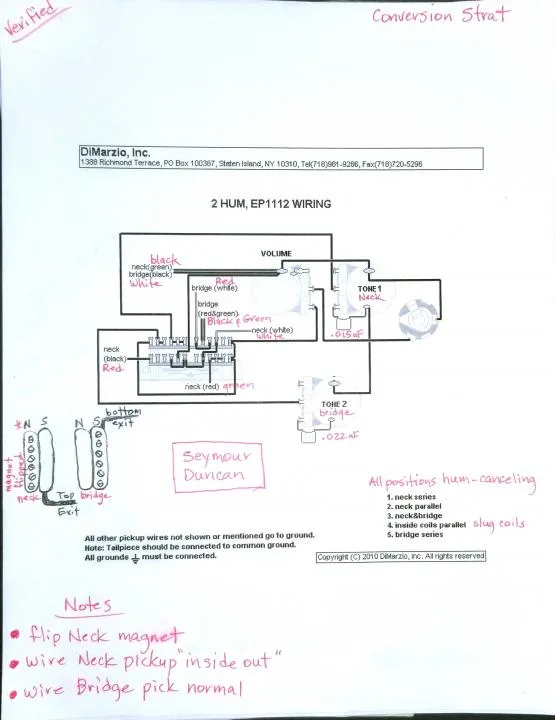 Verified
Conversion Strat
DiMarzio, Inc.
1388 Richmond Terrace, PO Box 100387, Staten Island, NY 10310, Tel(718)981-9286, Fax(718)720-5296
2 HUM, EP1112 WIRING
VOLUME
black
neck(green)
bridge(black)
White
Red
bridge (white)
TONE 1
Neck
bridge
(red&green)
Black & Green
neck (white)
White
.015uF
neck
(black)
Red
neck (red) green
TONE 2
bridge
.022uF
bottom
exit
*N S N S
magnet
flipped
neck
Top
Exit
bridge
Seymour
Duncan
All positions hum-canceling
1. neck series
2. neck parallel
3. neck&bridge
4. inside coils parallel slug coils
5. bridge series
All other pickup wires not shown or mentioned go to ground.
Note: Tailpiece should be connected to common ground.
All grounds must be connected.
Copyright (C) 2010 DiMarzio, Inc. All rights reserved
Notes
• flip Neck magnet
• wire Neck pickup "inside out"
• wire Bridge pick normal